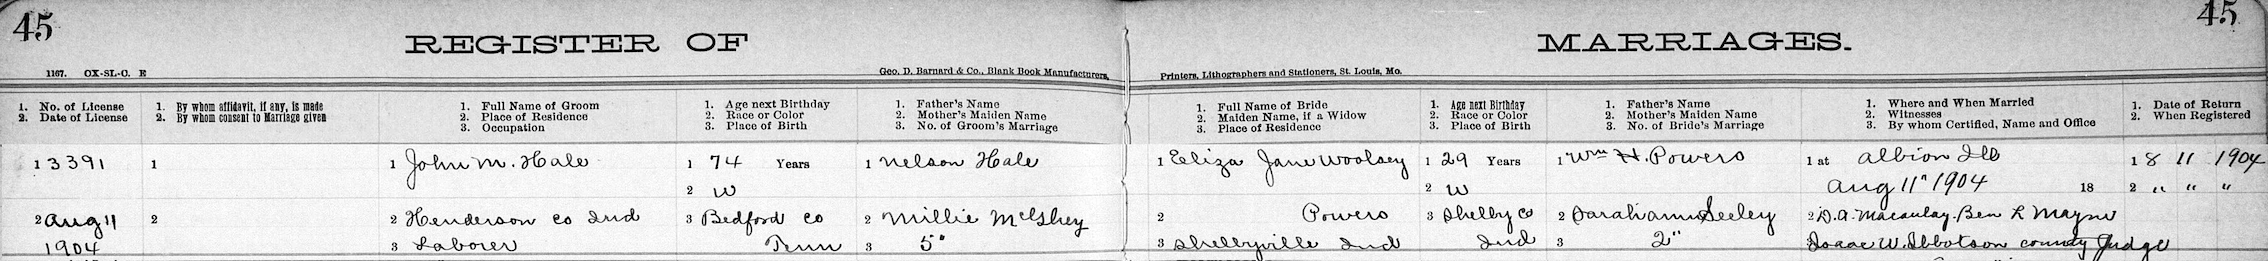 45
45
REGISTER OF MARRIAGES.
1167. OX-SL-O. E
Geo. D. Barnard & Co., Blank Book Manufacturers,
Printers, Lithographers and Stationers, St. Louis, Mo.
1. No. of License
2. Date of License
1. By whom affidavit, if any, is made
2. By whom consent to Marriage given
1. Full Name of Groom
2. Place of Residence
3. Occupation
1. Age next Birthday
2. Race or Color
3. Place of Birth
1. Father's Name
2. Mother's Maiden Name
3. No. of Groom's Marriage
1. Full Name of Bride
2. Maiden Name, if a Widow
3. Place of Residence
1. Age next Birthday
2. Race or Color
3. Place of Birth
1. Father's Name
2. Mother's Maiden Name
3. No. of Bride's Marriage
1. Where and When Married
2. Witnesses
3. By whom Certified, Name and Office
1. Date of Return
2. When Registered
1 3391
2 Aug 11
1904
1
2
1 John M. Hale
2 Henderson Co Ind
3 Laborer
1 74 Years
2 W
3 Bedford Co
Tenn
1 Nelson Hale
2 Millie
3 5"
1 Eliza Jane Woolsey
2 Powers
3 Shelbyville Ind
1 29 Years
2 W
3 Shelby Co
Ind
1 Wm H. Powers
2 Sarah Ann Seeley
3 2"
1 at Albion Ill
Aug 11" 1904 18
2 D.A. Macaulay. Ben L Mayne
Isaac W. Ibbotson County Judge
1 8 11 1904
2 " " "